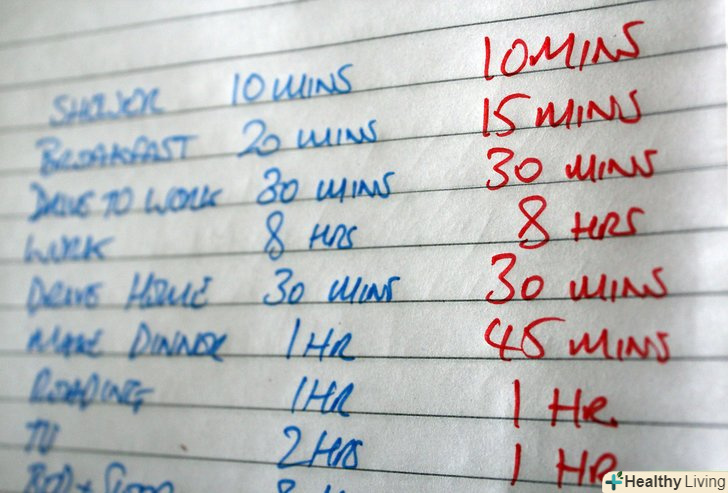 SHOWER 10 MINS 10 MINS
BREAKFAST 20 MINS 15 MINS
DRIVE TO WORK 30 MINS 30 MINS
WORK 8 HRS 8 HRS
DRIVE HOME 30 MINS 30 MINS
MAKE DINNER 1 HR 45 MINS
READING 1 HR 1 HR
TV 2 HRS 1 HR
Healthy Living